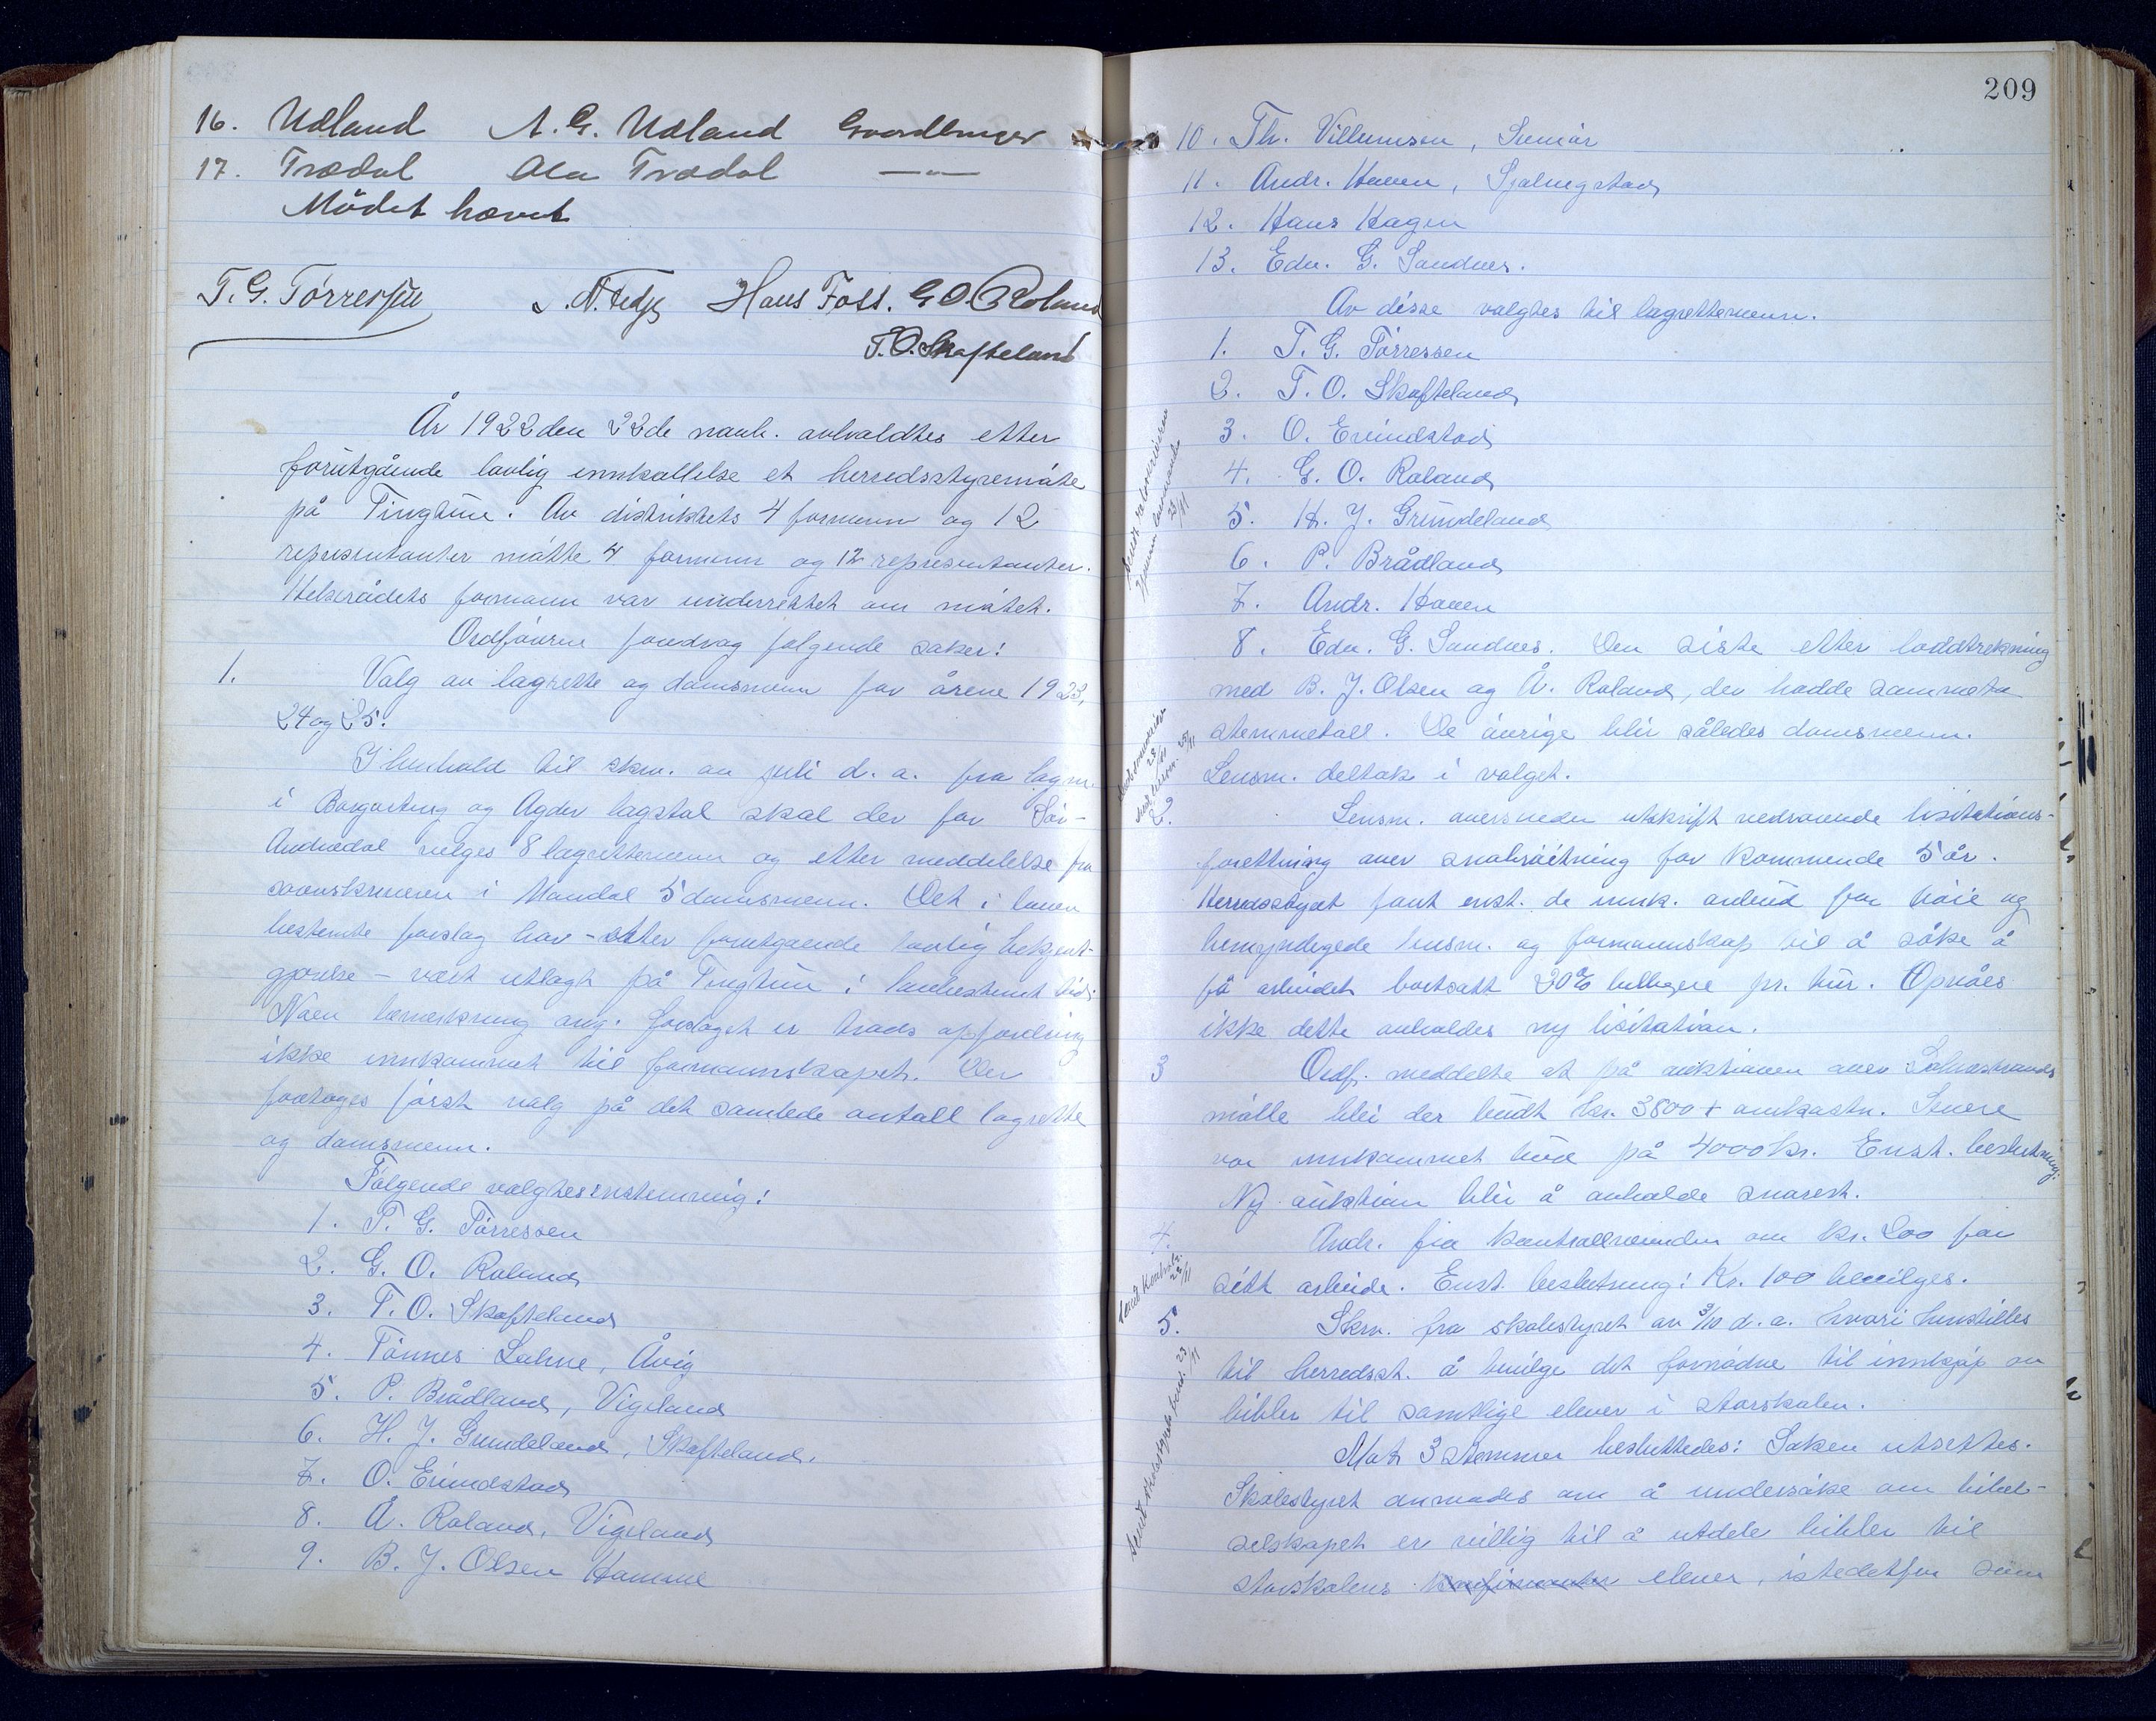 16. Udland A. G. Udland Gaardbruger
17. Trædal Ola Trædal —"—
Mödet hævet
T. G. Tórressen Hans Foss. G O. Roland
T. O. Skafteland
År 1922 den 22de novb. avholdtes etter
forutgående lovlig innkallelse et herredsstyremøte
på Tingtun. Av distriktets 4 formenn og 12
representanter møtte 4 formenn og 12 representanter.
Helserådets formann var underrettet om møtet.
Ordføreren foredrog følgende saker:
1. Valg av lagrette og domsmenn for årene 1923,
24 og 25.
I henhold til skrv. av juli d. a. fra lagm.
i Borgarting og Agder lagstol skal der for Sør-
Audnedal velges 8 lagrettemenn og etter meddelelse fra
sorenskriveren i Mandal 5 domsmenn. Det i loven
bestemte forslag har - etter forutgående lovlig bekjent-
gjørelse - vært utlagt på Tingtun i lovbestemt tid.
Noen bemerkning ang. forslaget er trods opfordring
ikke innkommet til formannskapet. Der
foretoges først valg på det samlede antall lagrette
og domsmenn.
Følgende valgtes enstemmig:
1. T. G. Tørressen
2. G. O. Roland
3. T. O. Skafteland
4. Tønnes Lohne, Åvig
5. P. Brådland, Vigeland
6. H. J. Grundeland, Skafteland.
7. O. Erindstad
8. Å. Roland, Vigeland
9. B. J. Olsen Homme
209
10. Th. Villumsen, Snniår
11. Andr. Hauen, Spilingstad
12. Hans Hagen
13. Edv. G. Sandnes.
Av disse valgtes til lagrettemenn.
1. T. G. Tørressen
2. T. O. Skafteland
3. O. Erindstad
4. G. O. Roland
5. H. J. Grundeland
6. P. Brådland
7. Andr. Hauen
8. Edv. G. Sandnes. Den siste etter loddtrekning
med B. J. Olsen og Å. Roland, der hadde samme
stemmetall. De øvrige blir således domsmenn.
Lensm. deltok i valget.
2. Lensm. oversender utskrift vedrørende lisitasions-
forettning over snebrøitning for kommende 5 år.
Herredsstyret fant enst. de innk. anbud for høie og
bemyndigede lensm. og formannskap til å søke å
få arbeidet bortsatt 20% billigere pr. tur. Opnåes
ikke dette avholdes ny lisitation.
3 Ordf. meddelte at på auktionen over
mølle blei der budt kr. 3800 + omkostn. Senere
var innkommet bud på 4000 kr. Enst. beslutning:
Ny auktion blir å avholde snarest.
4. Andr. fra kontrollnevnden om kr. 200 for
sitt arbeide. Enst. beslutning: Kr. 100 bevilges.
5. Skrv. fra skolestyret av 3/10 d. a. hvori henstilles
til herredsst. å bevilge det fornødne til innkjøp av
bibler til samtlige elever i storskolen.
Mot 3 stemmer besluttedes: Saken utsettes.
Skolestyret anmodes om å undersøke om bibel-
selskapet er villig til å utdele bibler til
storskolens konfirmanter elever, istedetfor som